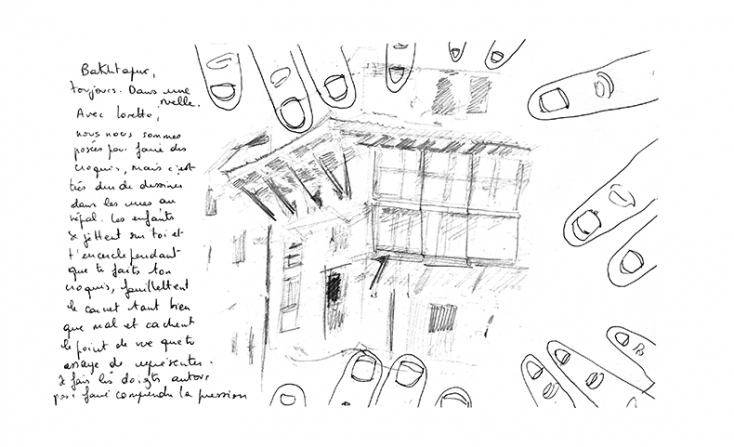 Bakhtapur,
toujours. Dans une
ruelle.
Avec Lorette,
nous nous sommes
posées pour faire des
croquis, mais c'est
très dur de dessiner
dans les rues au
népal. Les enfants
se jettent sur toi et
t'encercle pendant
que tu faits ton
croquis, feuillettent
le carnet tant bien
que mal et cachent
le point de vue que tu
essaye de représenter.
Je fais les doigts autour
pour faire comprendre la pression